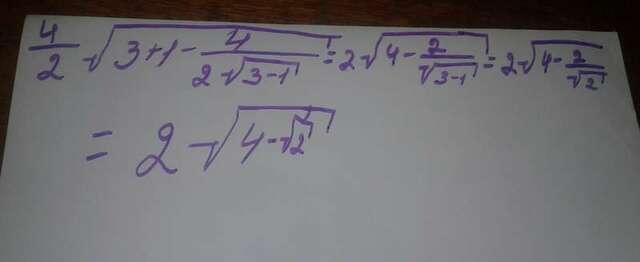 4/2 √(3+1-4/(2√(3-1))) = 2√(4-2/√(3-1)) = 2√(4-2/√2)
= 2√(4-√2)